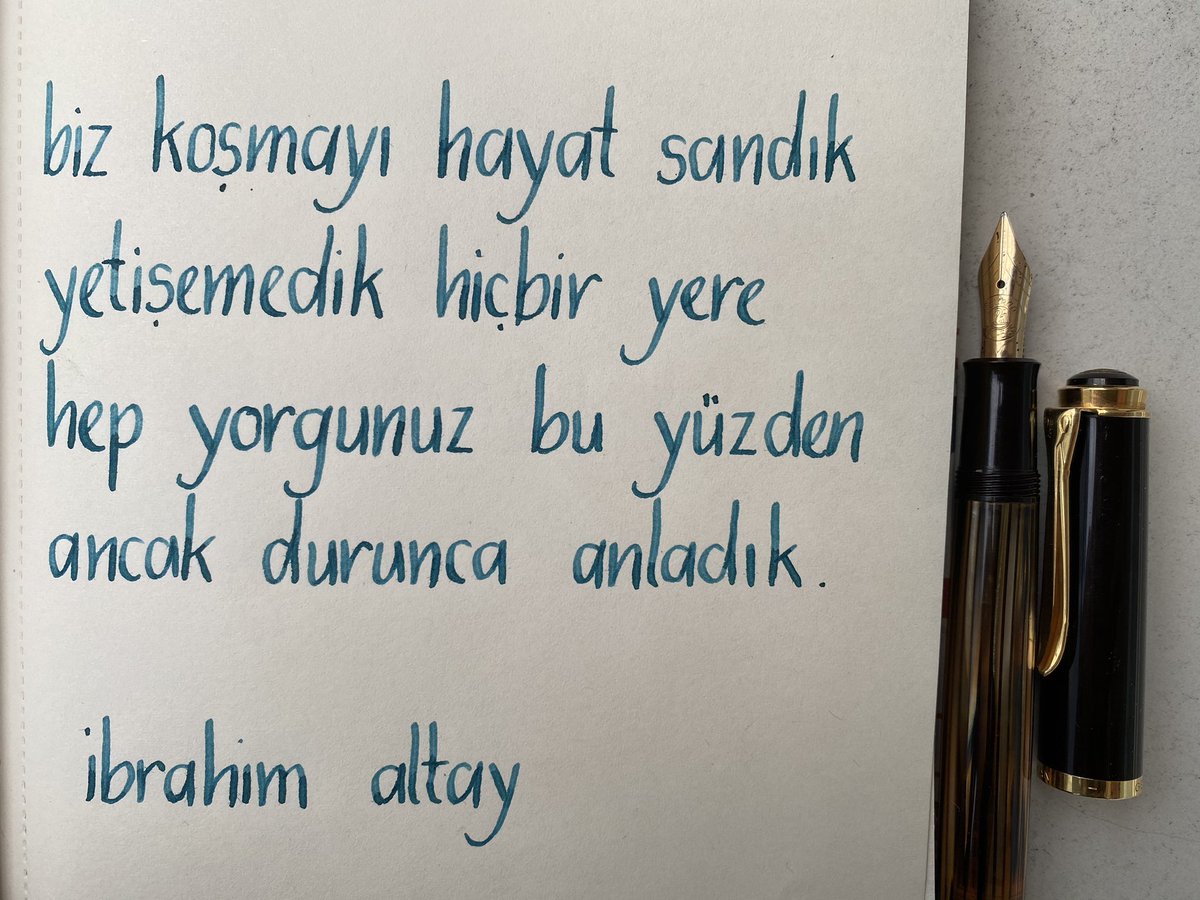 biz koşmayı hayat sandık
yetişemedik hiçbir yere
hep yorgunuz bu yüzden
ancak durunca anladık.
ibrahim altay